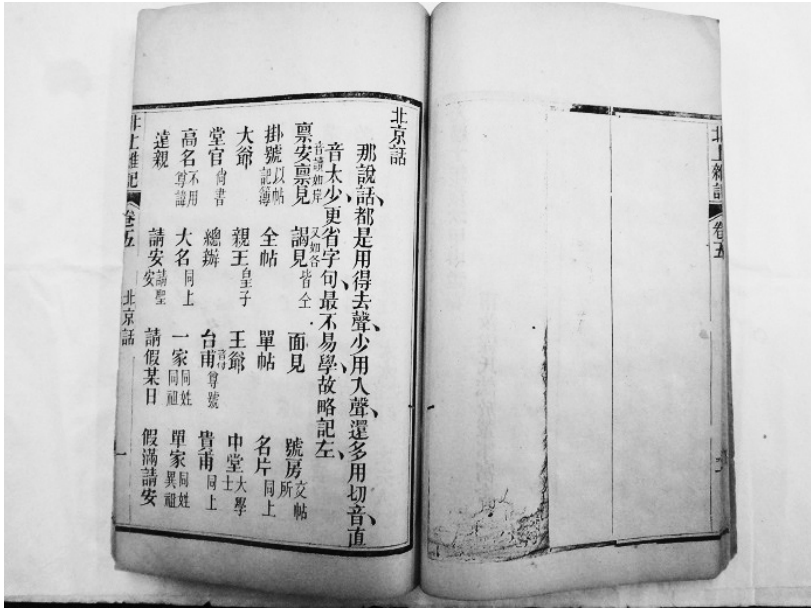 北上雜記 卷五
北京話
那說話都是用得去聲、少用入聲、還多用切音、直
音太少、更省字句、最不易學、故略記左、
音讀如岸 又如各
稟安稟見 謁見 皆仝 面見 號房 交帖所
掛號 以帖記簿 全帖 單帖 名片 同上
大爺 親王 皇子 王爺 中堂 大學士
堂官 尚書 總辦 台甫 尊號 貴甫 同上
高名 不用尊諱 大名 同上 一家 同姓同祖 單家 同姓異祖
遠親 請安 請聖安 請假某日 假滿請安
北上雜記 卷五 北京話 一